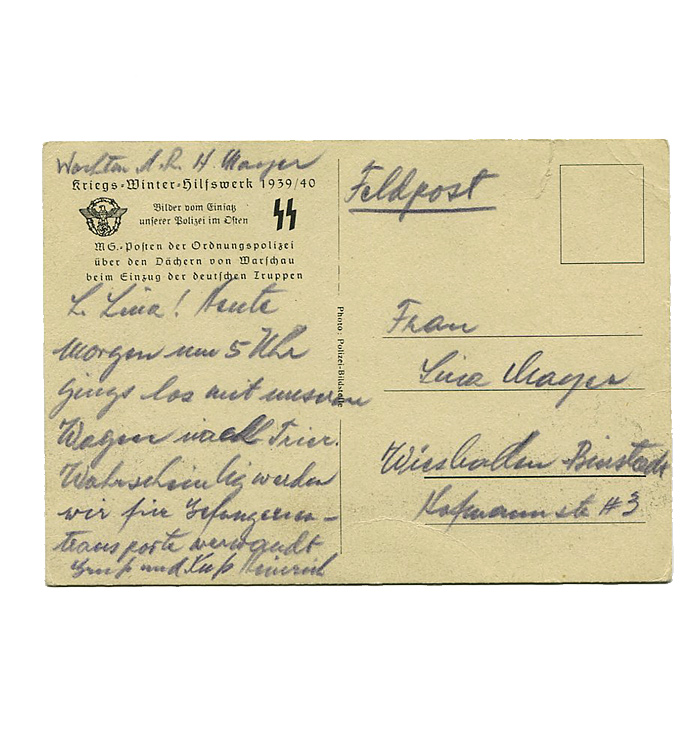 Wachtm. d. R. H. Mayer
Kriegs-Winter-Hilfswerk 1939/40
Bilder vom Einsatz
unserer Polizei im Osten
MG.-Posten der Ordnungspolizei
über den Dächern von Warschau
beim Einzug der deutschen Truppen
L. Lina! Heute
Morgen um 5 Uhr
gings los mit unseren
Wagen nach Trier.
Wahrscheinlig werden
wir für Gefangenen-
transporte verwandt
Gruß und Kuß Heinrich
Photo: Polizei-Bildstelle
Feldpost
Frau
Lina Mayer
Wiesbaden-Bierstadt
#3